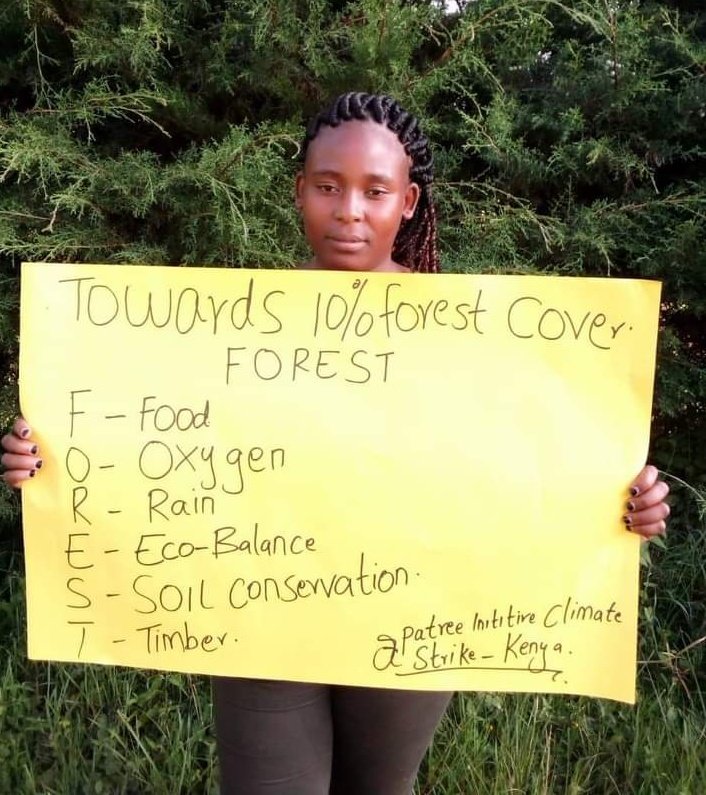 Towards 10% forest cover.
FOREST
F - Food
O - Oxygen
R - Rain
E - Eco-Balance
S - Soil conservation.
T - Timber.
@ Patree Inititive Climate
Strike - Kenya.